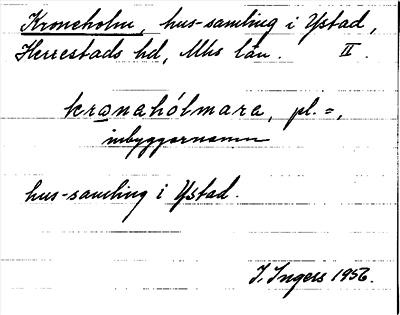 Kroneholm, hus-samling i Ystad,
Herrestads hd, Mhs län. II.
kronahólmara, pl. =,
inbyggarnamn
hus-samling i Ystad.
I. Ingers 1956.